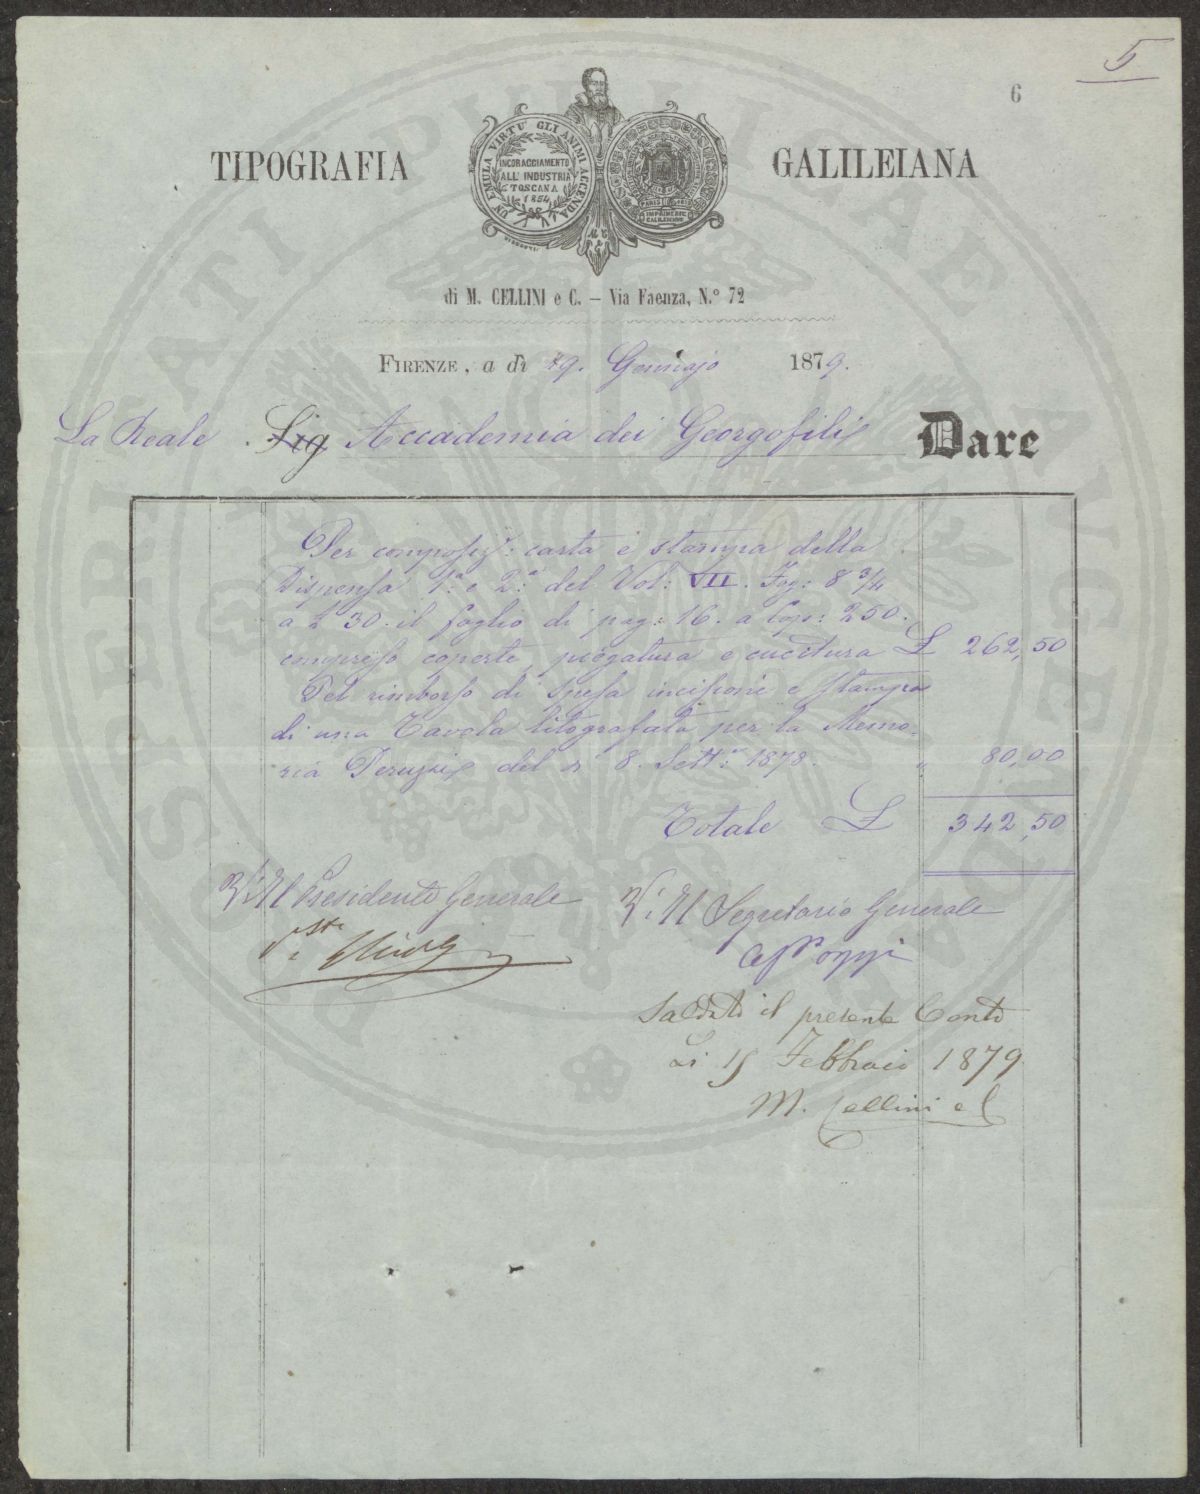 5
6
TIPOGRAFIA GALILEIANA
UN'EMULA VIRTU' GLI ANIMI ACCENDA
INCORAGGIAMENTO
ALL' INDUSTRIA
TOSCANA
1854
di M. CELLINI e C. – Via Faenza, N.° 72
FIRENZE, a dì 29. Gennajo 1879.
La Reale Sig Accademia dei Georgofili Dare
Per composiz: carta e stampa della
Dispensa 1ª e 2ª del Vol: VII. Fog: 8 3/4
a £ 30. il foglio di pag: 16. a Cop: 250.
compreso coperte, piegatura e cucitura £ 262,50
Pel rimborso di spesa incisione e stampa
di una Tavola litografata per la Memo-
ria Peruzzi del dì 8. Sett: 1878. " 80,00
Totale £ 342,50
V: Il Presidente Generale
V: Il Segretario Generale
Saldato il presente Conto
Li 15 Febbraio 1879
M. Cellini e C